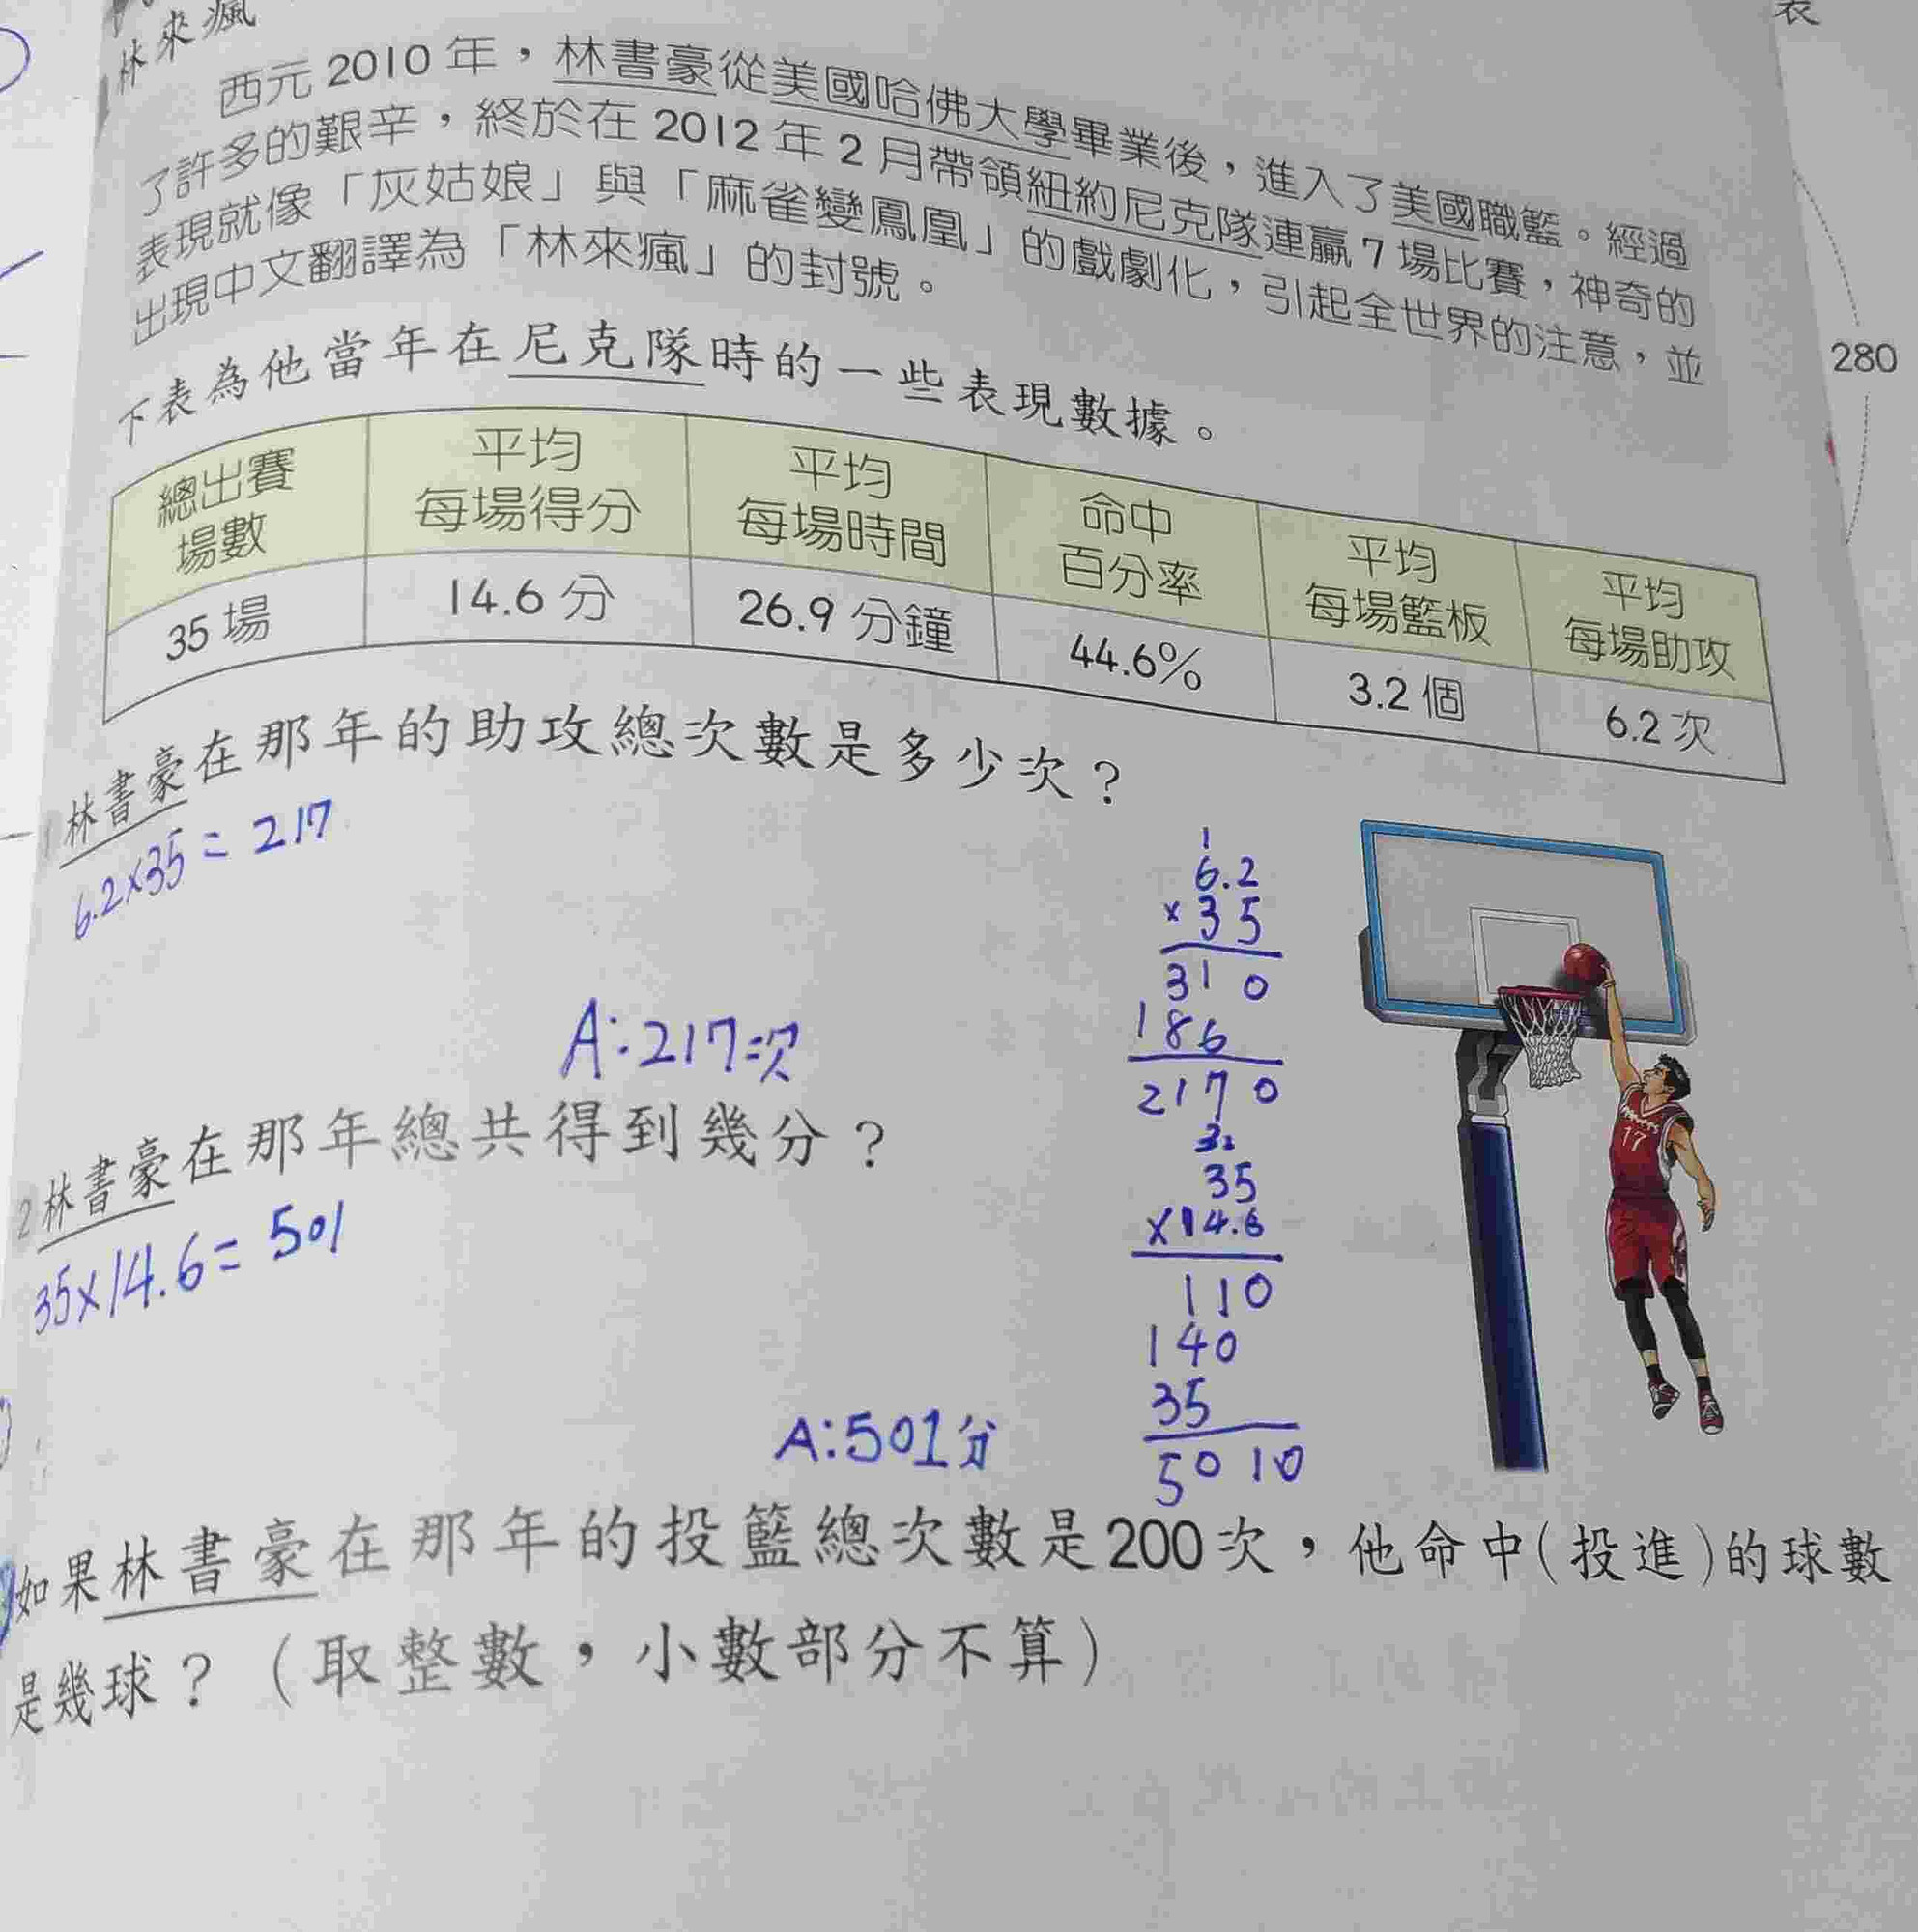 林來瘋
表
西元2010年，林書豪從美國哈佛大學畢業後，進入了美國職籃。經過
了許多的艱辛，終於在2012年2月帶領紐約尼克隊連贏7場比賽，神奇的
表現就像「灰姑娘」與「麻雀變鳳凰」的戲劇化，引起全世界的注意，並
出現中文翻譯為「林來瘋」的封號。
280
下表為他當年在尼克隊時的一些表現數據。
總出賽場數 平均每場得分 平均每場時間 命中百分率 平均每場籃板 平均每場助攻
35場 14.6分 26.9分鐘 44.6% 3.2個 6.2次
1林書豪在那年的助攻總次數是多少次？
6.2×35=217
1
6.2
×35
310
186
2170
A:217次
2林書豪在那年總共得到幾分？
35×14.6=501
32
35
×14.6
110
140
35
5010
A:501分
17
如果林書豪在那年的投籃總次數是200次，他命中(投進)的球數
是幾球？（取整數，小數部分不算）